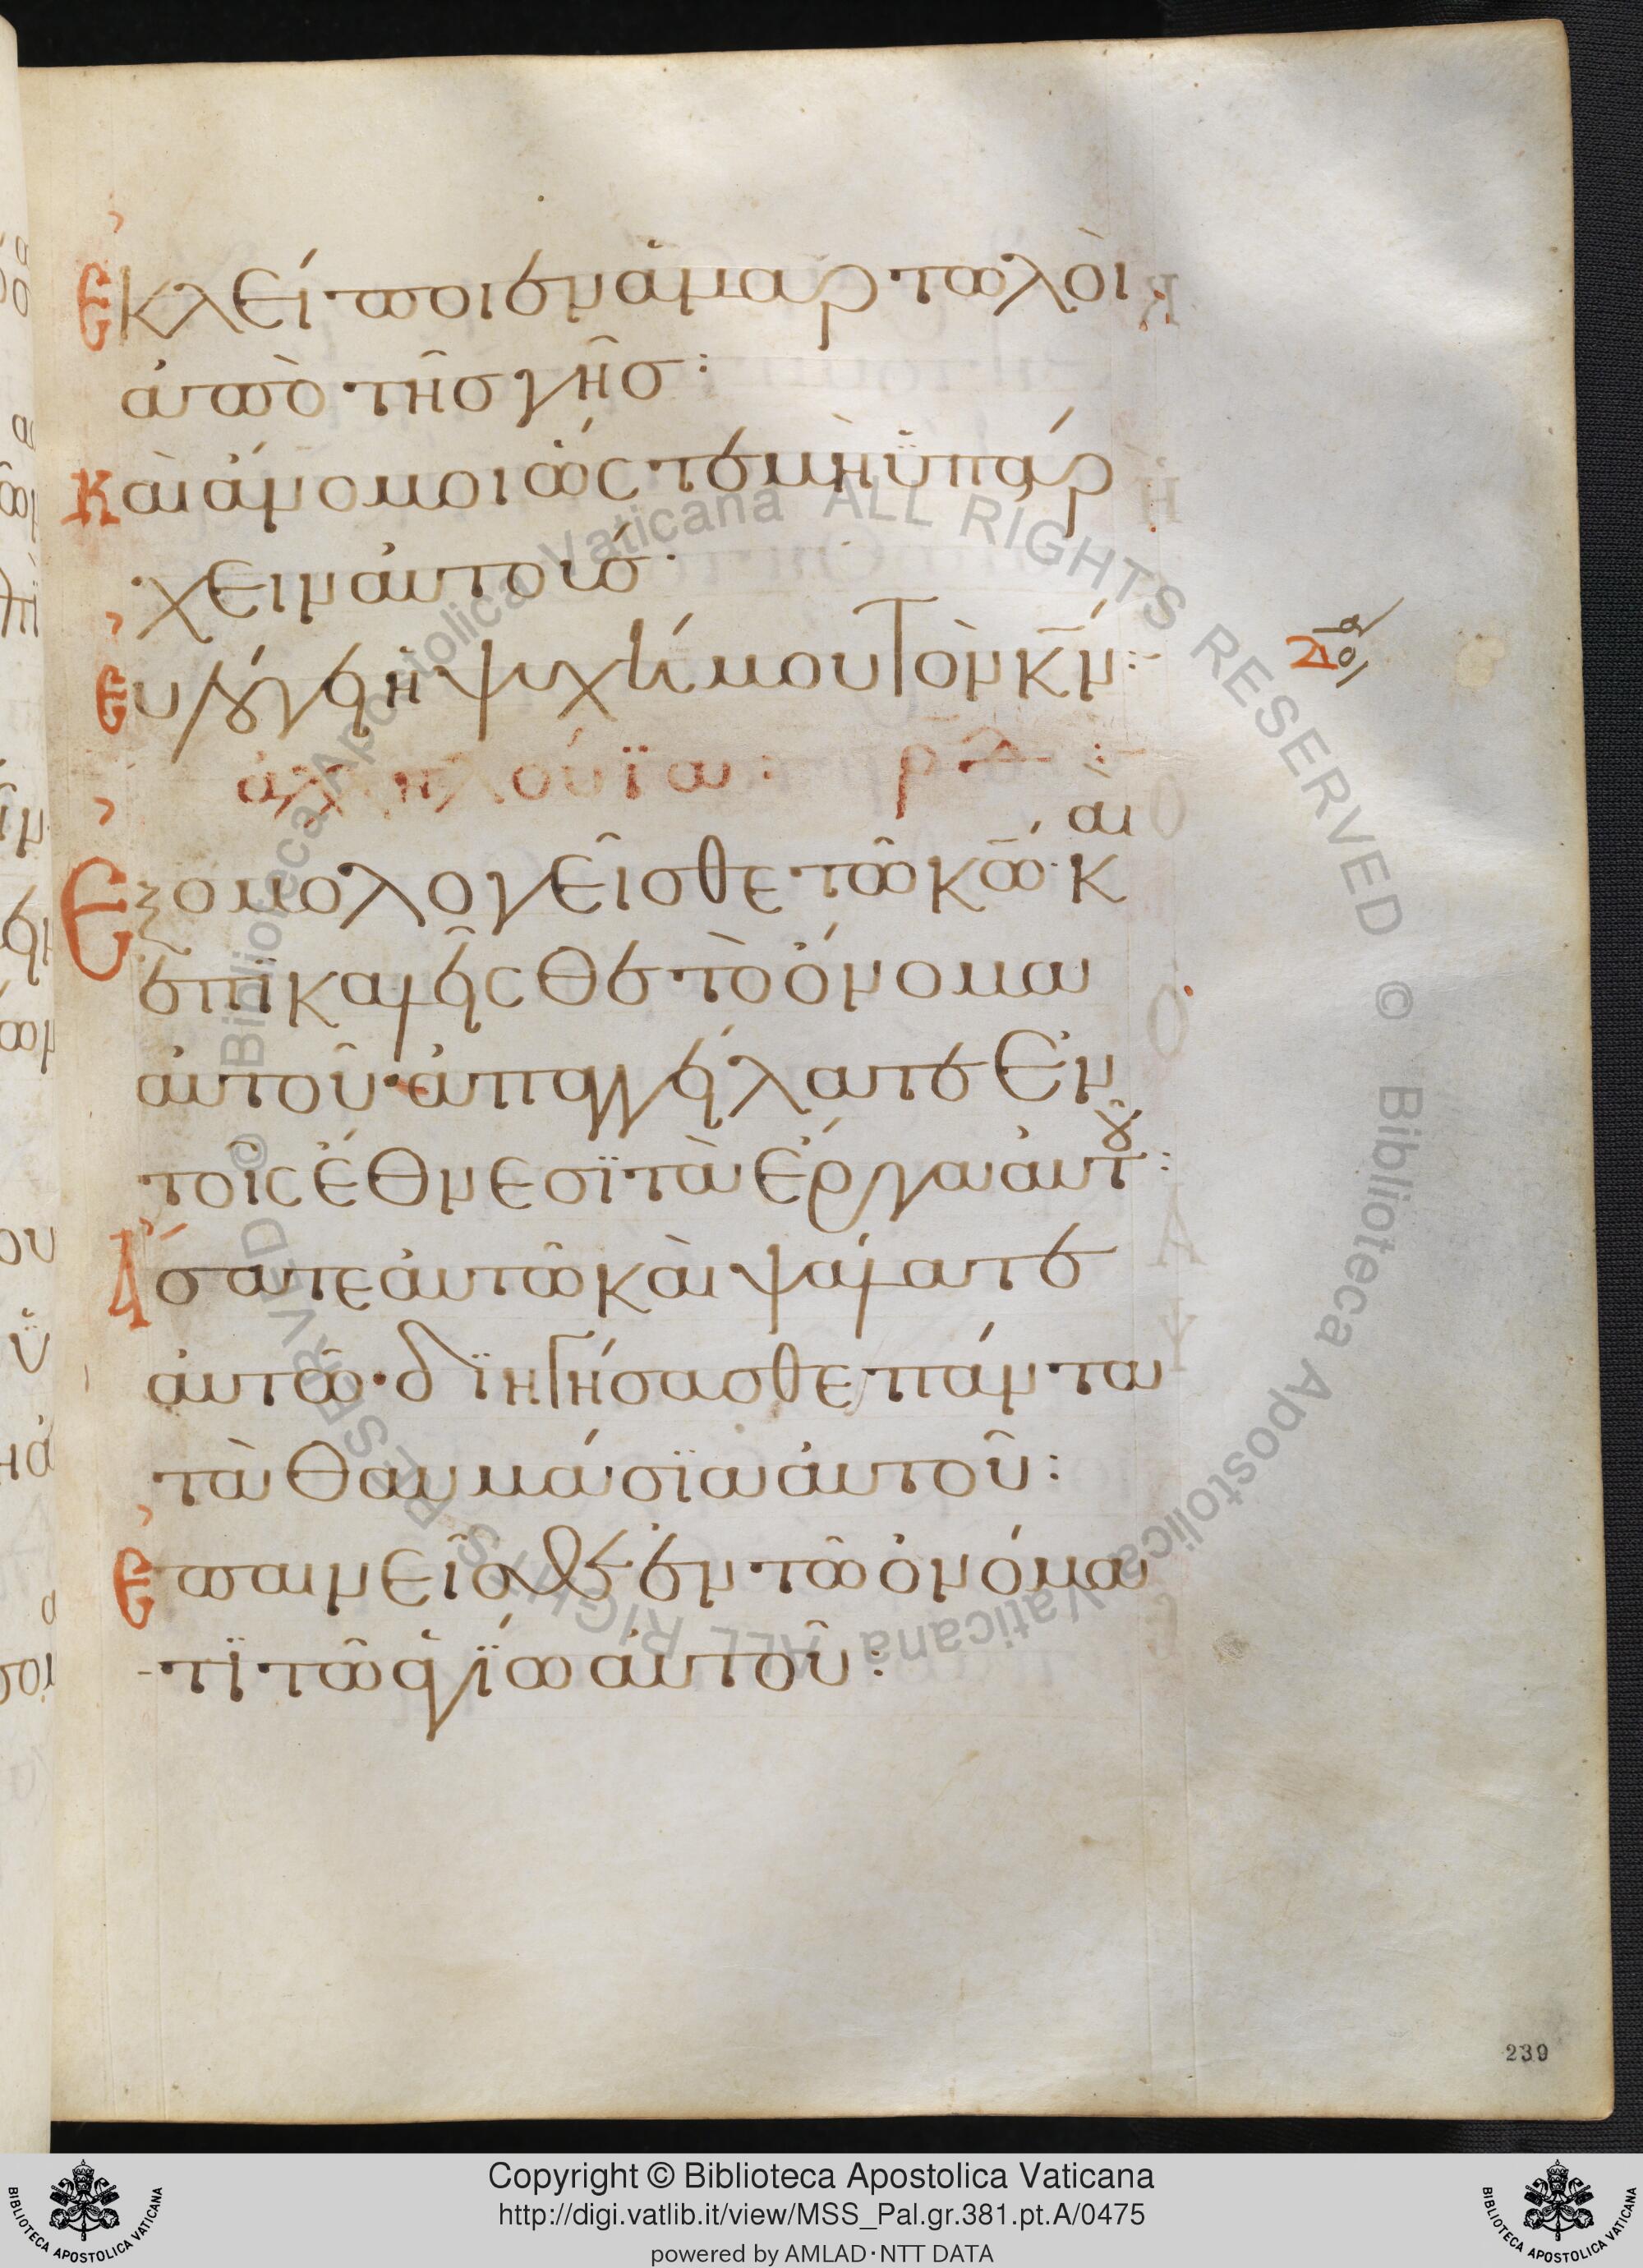 Ἐκλείποισεν ἁμαρτωλοὶ
ἀπὸ τῆσ γῆσ:
Καὶ ἄνομοι ὥς τε μὴ ὑπάρ
χειν αὐτούσ·
Εὐλόγει ἡ ψυχή μου τὸν κ̅ν̅:
ἀλληλούϊα: ρδ:
Ἐξομολογεῖσθε τῶ κ̅ω̅· καὶ
ἐπικαλεῖσθε τὸ ὄνομα
αὐτοῦ· ἀπαγγείλατε ἐν
τοῖς ἔθνεσϊ τὰ ἔργα αὐτοῦ:
Ἄσατε αὐτῶ καὶ ψάλατε
αὐτῶ· δϊηγήσασθε πάντα
τὰ θαυμάσϊα αὐτοῦ:
Ἐπαινεῖσθε ἐν τῶ ὀνόμα
τϊ τῶ ἁγίω αὐτοῦ:
239
© Biblioteca Apostolica Vaticana ALL RIGHTS RESERVED © Biblioteca Apostolica Vaticana ALL RIGHTS RESERVED
BIBLIOTECA APOSTOLICA VATICANA
Copyright © Biblioteca Apostolica Vaticana
http://digi.vatlib.it/view/MSS_Pal.gr.381.pt.A/0475
powered by AMLAD·NTT DATA
BIBLIOTECA APOSTOLICA VATICANA